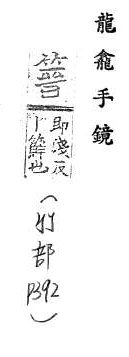 龍龕手鏡
即淺反
卜也
(竹部 P392)